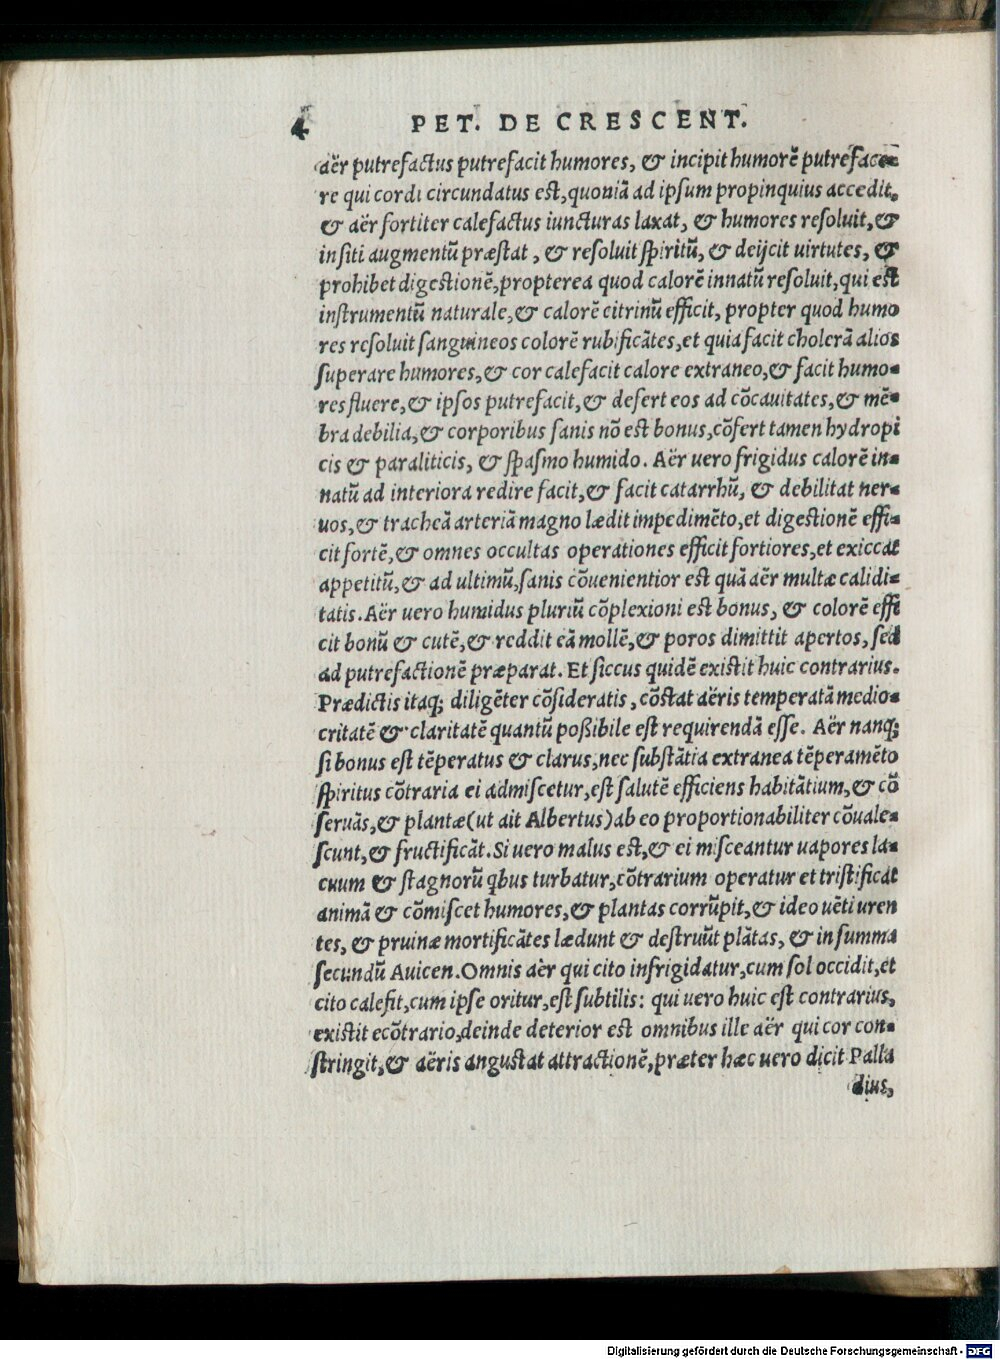 4 PET. DE CRESCENT.
aër putrefactus putrefacit humores, & incipit humorē putreface=
re qui cordi circundatus est, quoniā ad ipsum propinquius accedit,
& aër fortiter calefactus iuncturas laxat, & humores resoluit, &
in siti augmentū præstat, & resoluit spiritū, & deijcit uirtutes, &
prohibet digestionē, propterea quod calorē innatū resoluit, qui est
instrumentū naturale, & calorē citrinū efficit, propter quod humo
res resoluit sanguineos colorē rubificātes, et quia facit cholerā alios
superare humores, & cor calefacit calore extraneo, & facit humo=
res fluere, & ipsos putrefacit, & defert eos ad cōcauitates, & mē=
bra debilia, & corporibus sanis nō est bonus, cōfert tamen hydropi
cis & paraliticis, & spasmo humido. Aër uero frigidus calorē in=
natū ad interiora redire facit, & facit catarrhū, & debilitat ner=
uos, & tracheā arteriā magno lædit impedimēto, et digestionē effi=
cit fortē, & omnes occultas operationes efficit fortiores, et exiccat
appetitū, & ad ultimū, sanis cōuenientior est quā aër multæ calidi=
tatis. Aër uero humidus pluriū cōplexioni est bonus, & colorē effi
cit bonū & cutē, & reddit eā mollē, & poros dimittit apertos, sed
ad putrefactionē præparat. Et siccus quidē existit huic contrarius.
Prædictis itaq; diligēter cōsideratis, cōstat aëris temperatā medio=
critatē & claritatē quantū poßibile est requirendā esse. Aër nanq;
si bonus est tēperatus & clarus, nec substātia extranea tēperamēto
spiritus cōtraria ei admiscetur, est salutē efficiens habitātium, & cō
seruās, & plantæ (ut ait Albertus) ab eo proportionabiliter cōuale=
scunt, & fructificāt. Si uero malus est, & ei misceantur uapores la=
cuum & stagnorū qbus turbatur, cōtrarium operatur et tristificat
animā & cōmiscet humores, & plantas corrūpit, & ideo uēti uren
tes, & pruinæ mortificātes lædunt & destruūt plātas, & in summa
secundū Auicen. Omnis aër qui cito infrigidatur, cum sol occidit, et
cito calefit, cum ipse oritur, est subtilis: qui uero huic est contrarius,
existit ecōtrario, deinde deterior est omnibus ille aër qui cor con=
stringit, & aëris angustat attractionē, præter hæc uero dicit Palla
dius,
Digitalisierung gefördert durch die Deutsche Forschungsgemeinschaft - DFG